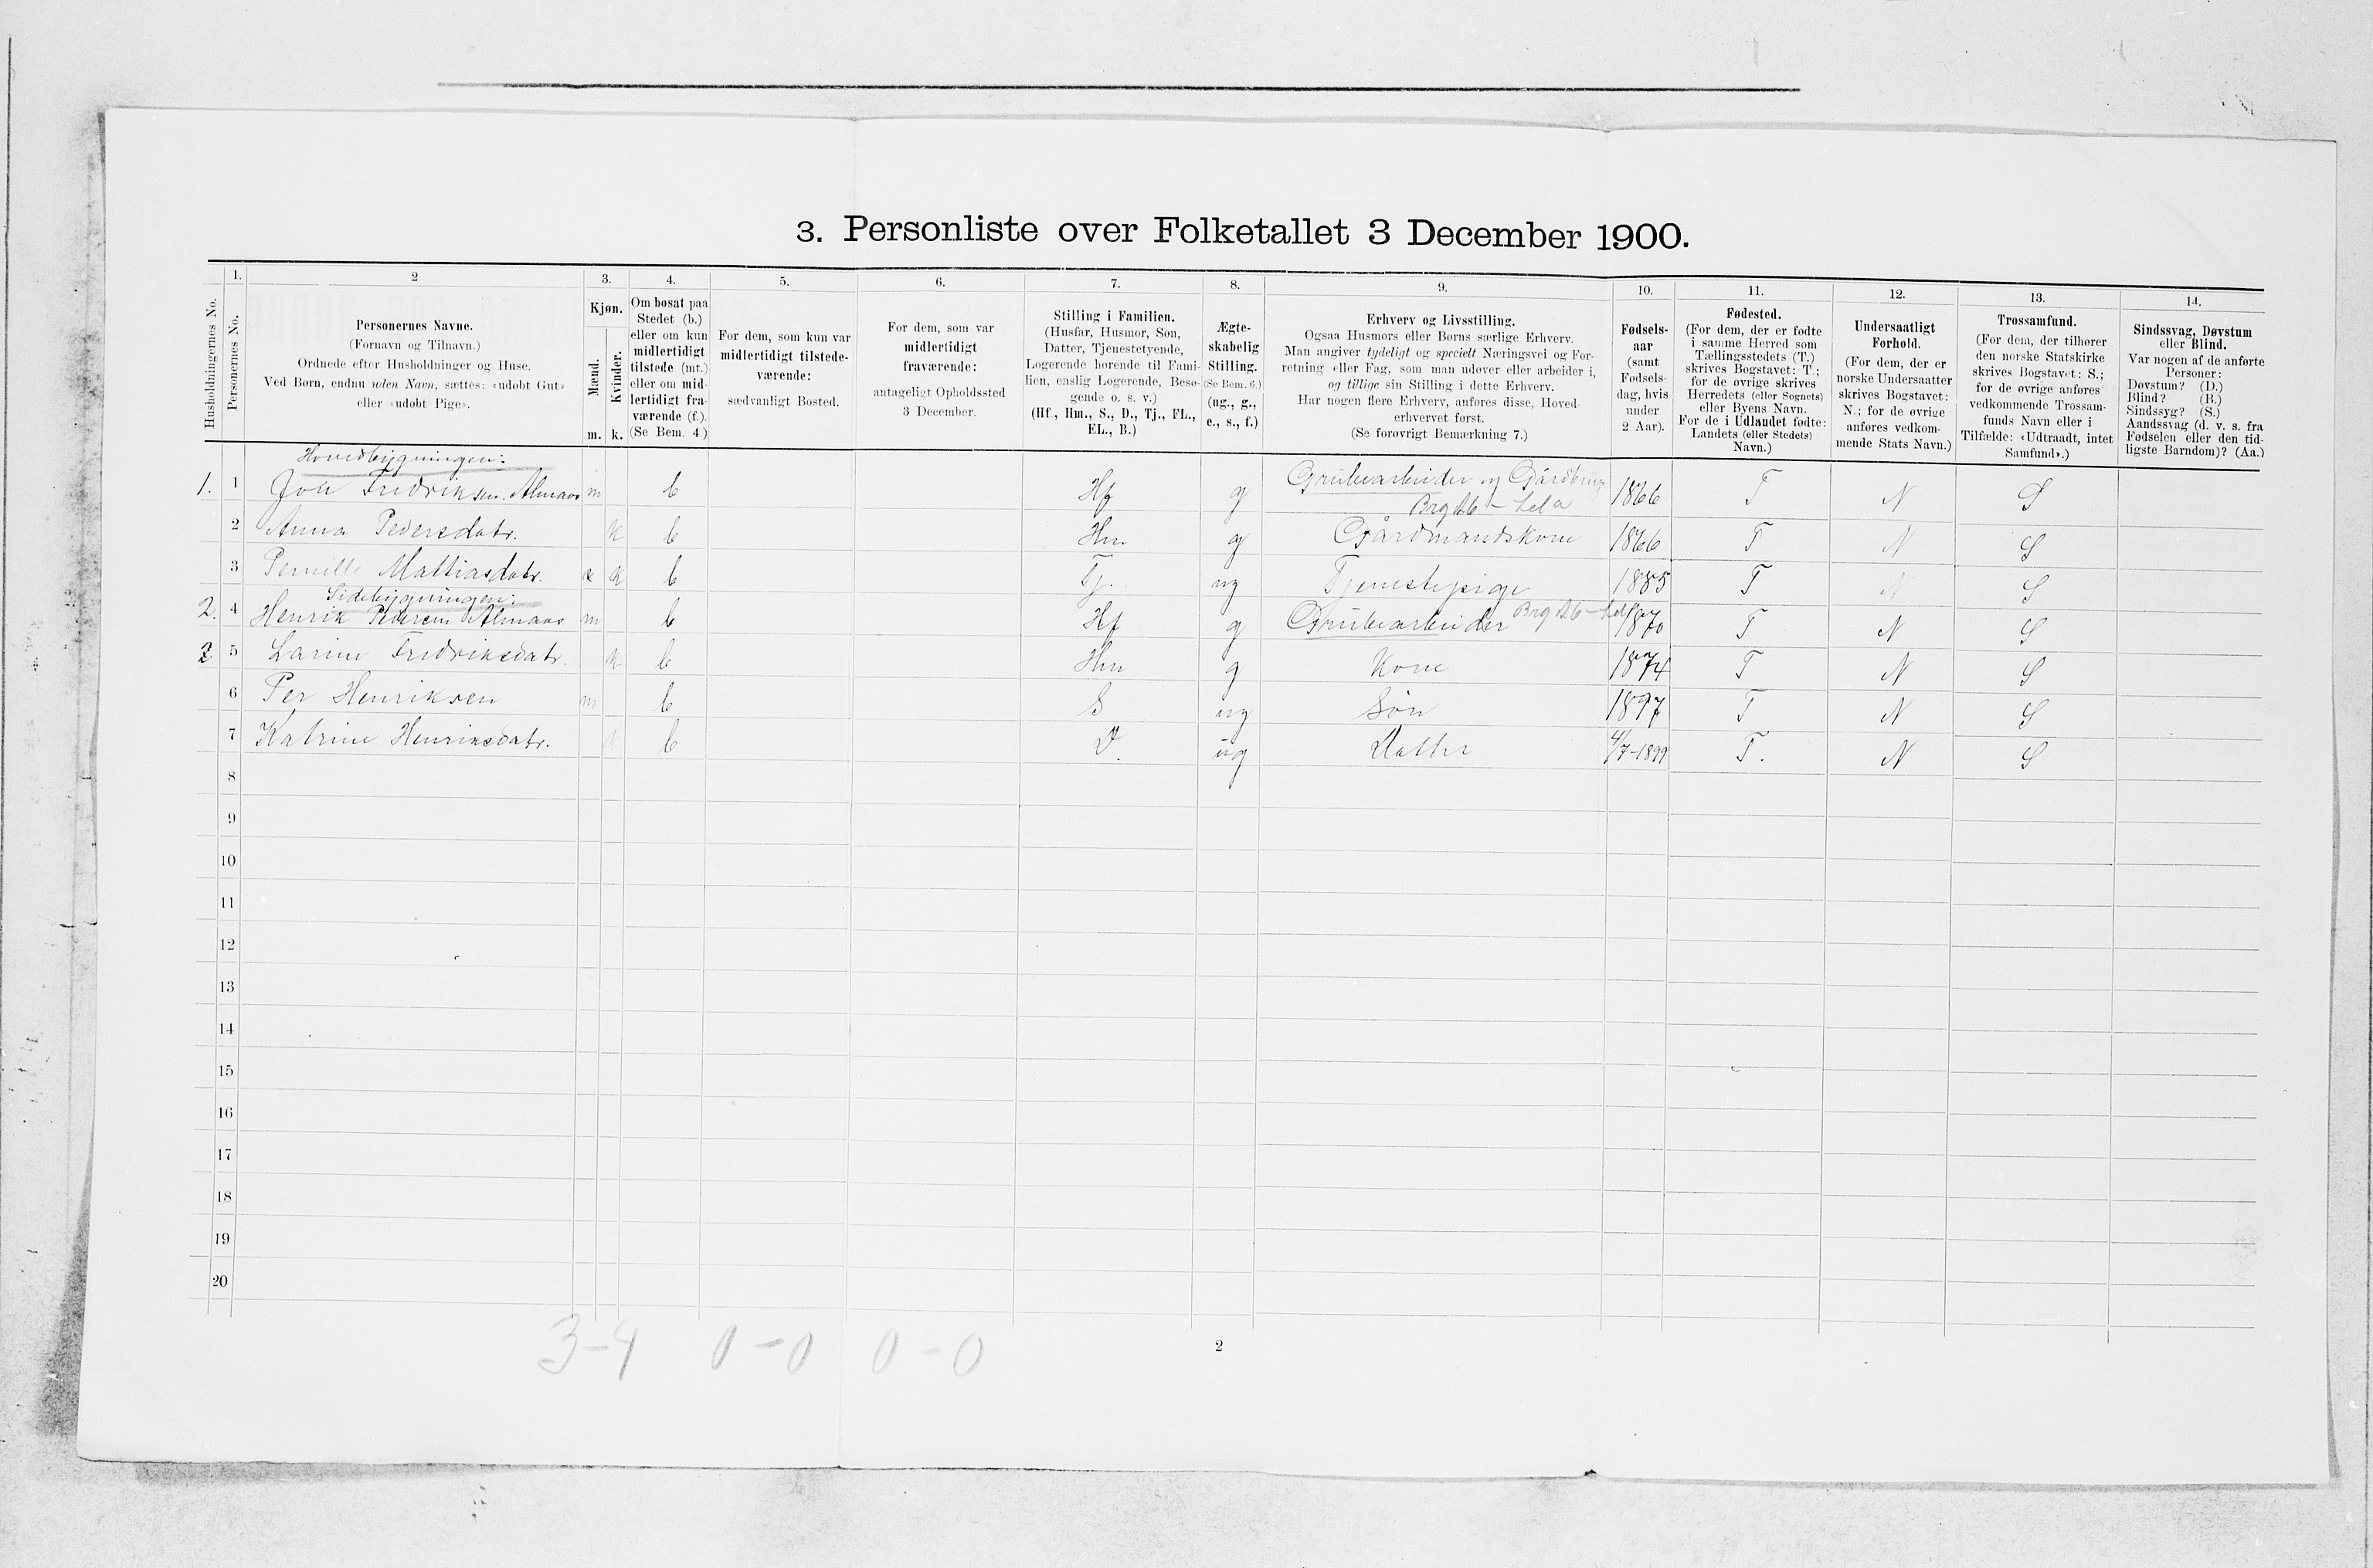 3. Personliste over Folketallet 3 December 1900.
Husholdningernes No.
1.
Personernes No.
2
Personernes Navne.
(Fornavn og Tilnavn.)
Ordnede efter Husholdninger og Huse.
Ved Børn, endnu uden Navn, sættes: «udøbt Gut»
eller «udøbt Pige».
3.
Kjøn.
Mænd.
Kvinder.
m. k.
4.
Om bosat paa
Stedet (b.)
eller om kun
midlertidigt
tilstede (mt.)
eller om mid-
lertidigt fra-
værende (f.).
(Se Bem. 4.)
5.
For dem, som kun var
midlertidigt tilstede-
værende:
sædvanligt Bosted.
6.
For dem, som var
midlertidigt
fraværende:
antageligt Opholdssted
3 December.
7.
Stilling i Familien.
(Husfar, Husmor, Søn,
Datter, Tjenestetyende,
Logerende hørende til Fami-
lien, enslig Logerende, Besø-
gende o. s. v.)
(Hf., Hm., S., D., Tj., FL.,
EL., B.)
8.
Ægte-
skabelig
Stilling.
(Se Bem. 6.)
(ug., g.,
e., s., f.)
9.
Erhverv og Livsstilling.
Ogsaa Husmors eller Børns særlige Erhverv.
Man angiver tydeligt og specielt Næringsvei og For-
retning eller Fag, som man udøver eller arbeider i,
og tillige sin Stilling i dette Erhverv.
Har nogen flere Erhverv, anføres disse, Hoved-
erhvervet først.
(Se forøvrigt Bemærkning 7.)
10.
Fødsels-
aar
(samt
Fødsels-
dag, hvis
under
2 Aar).
11.
Fødested.
(For dem, der er fødte
i samme Herred som
Tællingsstedets (T.)
skrives Bogstavet: T.;
for de øvrige skrives
Herredets (eller Sognets)
eller Byens Navn.
For de i Udlandet fødte:
Landets (eller Stedets)
Navn.)
12.
Undersaatligt
Forhold.
(For dem, der er
norske Undersaatter
skrives Bogstavet:
N.; for de øvrige
anføres vedkom-
mende Stats Navn.)
13.
Trossamfund.
(For dem, der tilhører
den norske Statskirke
skrives Bogstavet: S.;
for de øvrige anføres
vedkommende Trossam-
funds Navn eller i
Tilfælde: «Udtraadt, intet
Samfund».)
14.
Sindssvag, Døvstum
eller Blind.
Var nogen af de anførte
Personer:
Døvstum? (D.)
Blind? (B.)
Sindssyg? (S.)
Aandssvag (d. v. s. fra
Fødselen eller den tid-
ligste Barndom)? (Aa.)
Hovedbygningen:
1. 1 Jon Fredriksen Almaas m b Hf g Grubearbeider og Gårdbrug 1866 T N S
2 Anna Pedersdatr. k b Hm g Gårdmandskone 1866 T N S
3 Pernille Mattiasdatr. k b Tj. ug Tjenestepige 1885 T N S
Sidebygningen:
2. 4 Henrik Pedersen Almaas m b Hf g Grubearbeider 1870 T N S
2 5 Larine Fredriksdatr. k b Hm g Kone 1874 T N S
6 Per Henriksen m b S ug Søn 1897 T N S
7 Katrine Henriksdatr. k b D. ug Datter 4/7-1899 T. N S
8
9
10
11
12
13
14
15
16
17
18
19
20
3-4 0-0 0-0
2